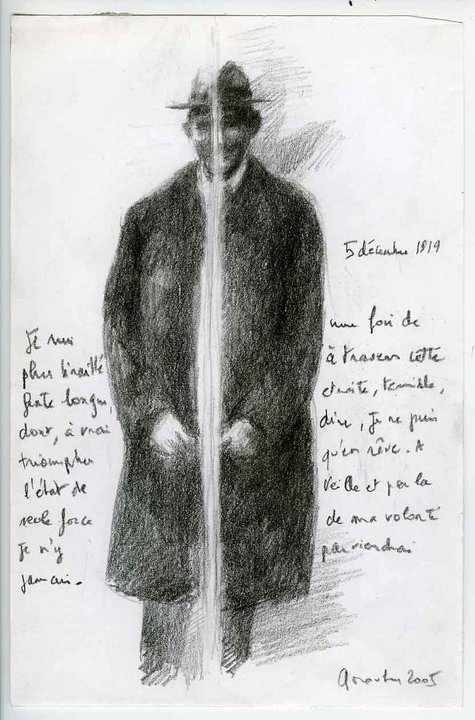 5 décembre 1919
Je suis une fois de
plus tiraillé à travers cette
fente longue, étroite, terrible,
dont, à vrai dire, je ne puis
triompher qu'en rêve. A
l'état de veille et par la
seule force de ma volonté
je n'y parviendrai
jamais.
2005